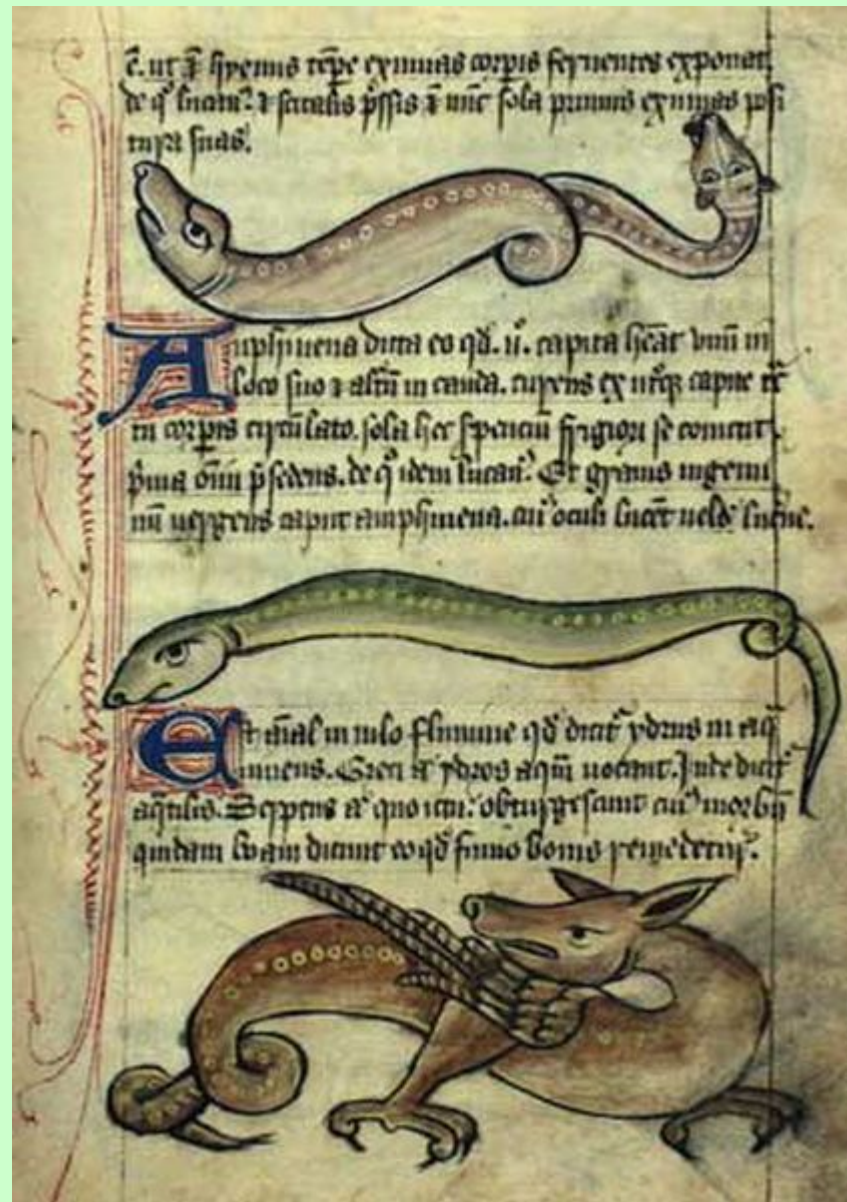 ē. ut ī hyemis tēpe exuuias corpis feruentes exponat.
de qͦ lucanꝰ. ⁊ scitalis spͣsis ī nūc sola pruinis exuuias posi
tura suas.
Amphiuena dicta eo qđ .ii. capita heāt vnū in
loco suo ⁊ altū in cauda. currens ex utroqꝫ capite tͣc
tu corpis circulato. sola hec spenciū frigori se comittit
pͥma oīm pͣcedens. de qͦ idem lucanꝰ. Et grauis in gemi
nū uergens caput amphiuena. cuiꝰ oculi lucēt uelđ lucne.
Est aīal in nilo flumine qđ dicit͛ ydrus in aqͣ
uiuens. Greci eī ydros aqͣm uocant. Inde dict͛
aqͣtilis. Serpens a quo ictiꝰ obturgescunt cuiꝰ morbū
quidam boam dicunt eo qđ fimo bouis remedetur.